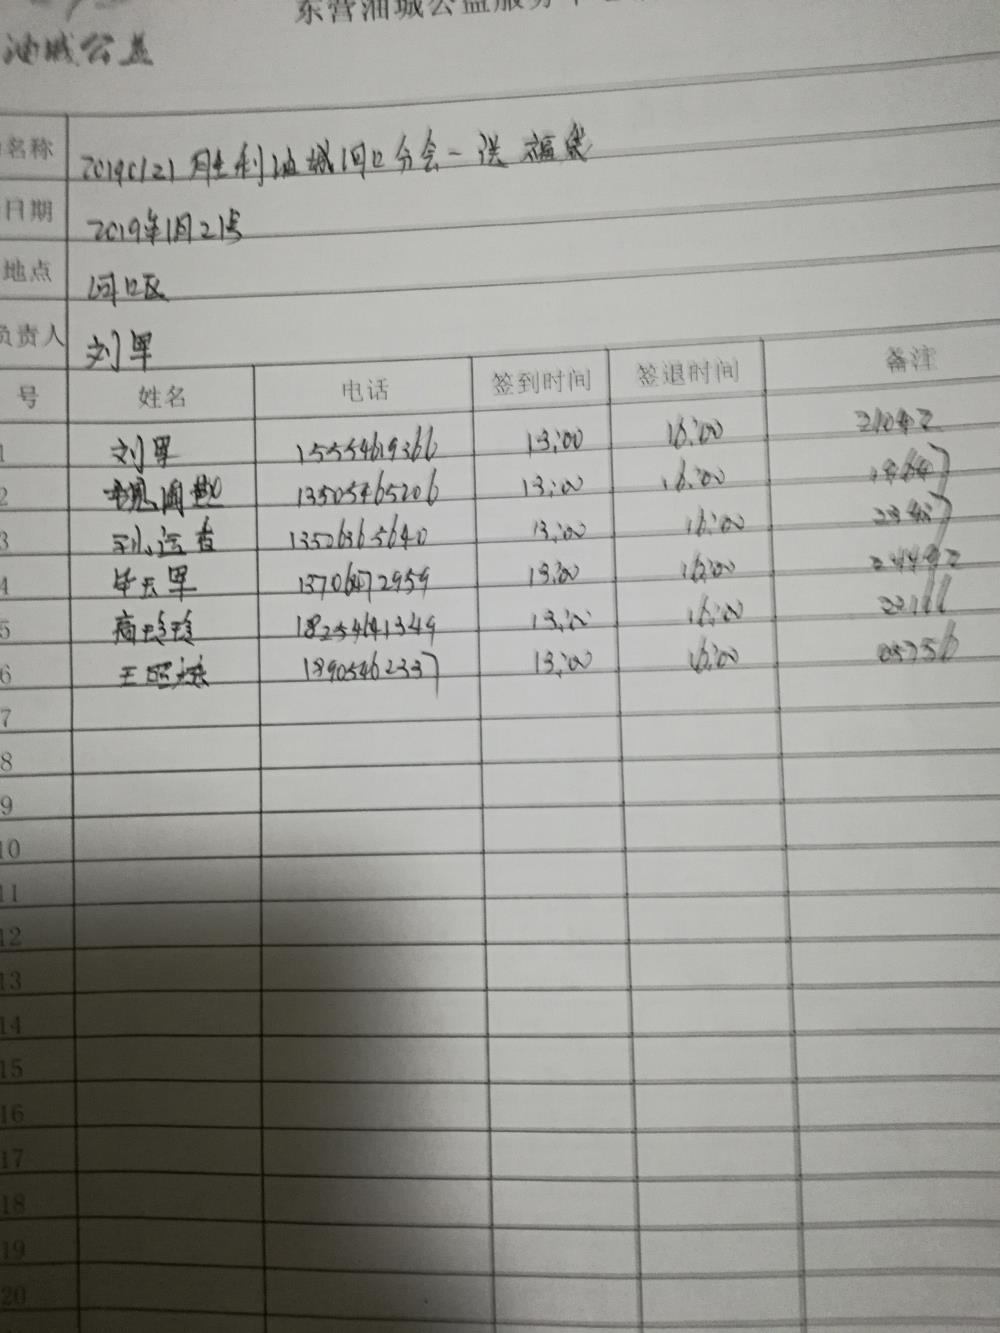 东营油城公益服务中心
油城公益
名称 20190121胜利油城河口分会-送福袋
日期 2019年1月21号
地点 河口区
负责人 刘军
号 姓名 电话 签到时间 签退时间 备注
1 刘军 15554619366 13:00 16:00 21042
2 13505465206 13:00 16:00
3 13526365640 13:00 16:00
4 毕云军 13706472959 13:00 16:00 24492
5 18254641349 13:00 16:00 22166
6 王昭 13905462337 13:00 16:00 05756
7
8
9
10
11
12
13
14
15
16
17
18
19
20